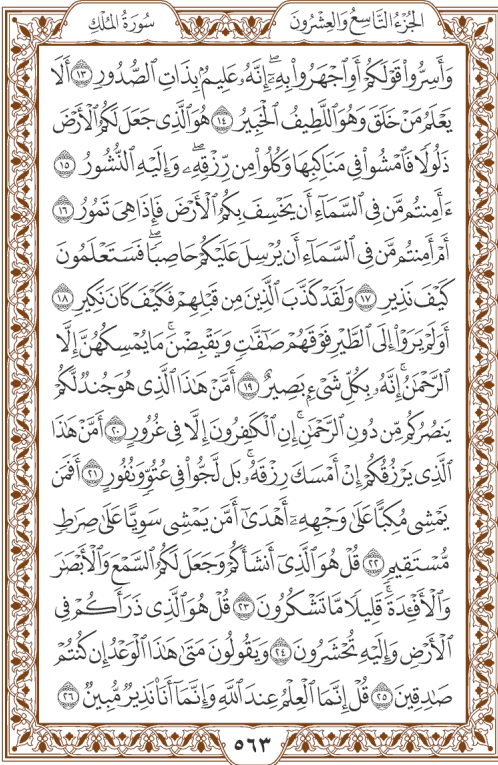 الجُزْءُ التَّاسِعُ وَالعِشْرُونَ سُورَةُ المُلْكِ
وَأَسِرُّوا۟ قَوْلَكُمْ أَوِ ٱجْهَرُوا۟ بِهِۦٓ ۖ إِنَّهُۥ عَلِيمٌۢ بِذَاتِ ٱلصُّدُورِ ١٣ أَلَا
يَعْلَمُ مَنْ خَلَقَ وَهُوَ ٱللَّطِيفُ ٱلْخَبِيرُ ١٤ هُوَ ٱلَّذِى جَعَلَ لَكُمُ ٱلْأَرْضَ
ذَلُولًا فَٱمْشُوا۟ فِى مَنَاكِبِهَا وَكُلُوا۟ مِن رِّزْقِهِۦ ۖ وَإِلَيْهِ ٱلنُّشُورُ ١٥
ءَأَمِنتُم مَّن فِى ٱلسَّمَآءِ أَن يَخْسِفَ بِكُمُ ٱلْأَرْضَ فَإِذَا هِىَ تَمُورُ ١٦
أَمْ أَمِنتُم مَّن فِى ٱلسَّمَآءِ أَن يُرْسِلَ عَلَيْكُمْ حَاصِبًا ۖ فَسَتَعْلَمُونَ
كَيْفَ نَذِيرِ ١٧ وَلَقَدْ كَذَّبَ ٱلَّذِينَ مِن قَبْلِهِمْ فَكَيْفَ كَانَ نَكِيرِ ١٨
أَوَلَمْ يَرَوْا۟ إِلَى ٱلطَّيْرِ فَوْقَهُمْ صَٰٓفَّٰتٍ وَيَقْبِضْنَ ۚ مَا يُمْسِكُهُنَّ إِلَّا
ٱلرَّحْمَٰنُ ۚ إِنَّهُۥ بِكُلِّ شَىْءٍۭ بَصِيرٌ ١٩ أَمَّنْ هَٰذَا ٱلَّذِى هُوَ جُندٌ لَّكُمْ
يَنصُرُكُم مِّن دُونِ ٱلرَّحْمَٰنِ ۚ إِنِ ٱلْكَٰفِرُونَ إِلَّا فِى غُرُورٍ ٢٠ أَمَّنْ هَٰذَا
ٱلَّذِى يَرْزُقُكُمْ إِنْ أَمْسَكَ رِزْقَهُۥ ۚ بَل لَّجُّوا۟ فِى عُتُوٍّ وَنُفُورٍ ٢١ أَفَمَن
يَمْشِى مُكِبًّا عَلَىٰ وَجْهِهِۦٓ أَهْدَىٰٓ أَمَّن يَمْشِى سَوِيًّا عَلَىٰ صِرَٰطٍ
مُّسْتَقِيمٍ ٢٢ قُلْ هُوَ ٱلَّذِىٓ أَنشَأَكُمْ وَجَعَلَ لَكُمُ ٱلسَّمْعَ وَٱلْأَبْصَٰرَ
وَٱلْأَفْـِٔدَةَ ۖ قَلِيلًا مَّا تَشْكُرُونَ ٢٣ قُلْ هُوَ ٱلَّذِى ذَرَأَكُمْ فِى
ٱلْأَرْضِ وَإِلَيْهِ تُحْشَرُونَ ٢٤ وَيَقُولُونَ مَتَىٰ هَٰذَا ٱلْوَعْدُ إِن كُنتُمْ
صَٰدِقِينَ ٢٥ قُلْ إِنَّمَا ٱلْعِلْمُ عِندَ ٱللَّهِ وَإِنَّمَآ أَنَا۠ نَذِيرٌ مُّبِينٌ ٢٦
٥٦٣